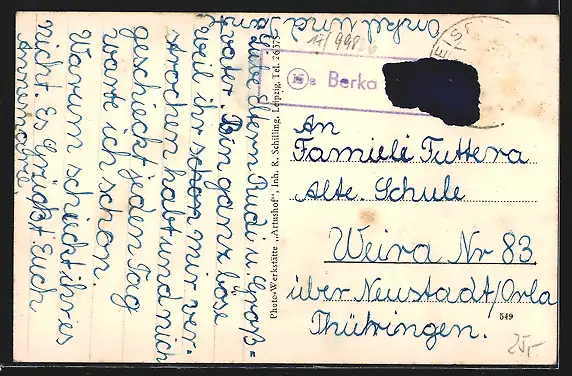 Liebe Eltern Rudi u. Groß=
vater Bin ganz böse
weil ihr schon mir ver-
sprochen habt und nich
geschieckt jeden Tag
warte ich schon.
Warum schieckt ihr es
nicht. Es Grüßt Euch
Annemarie,
Onkel und Tant
17/998
Photo-Werkstätte „Artushof", Inh. R. Schilling, Leipzig, Tel. 26378
Berka
An
Famieli Tuttera
Alte. Schule
Weira Nr 83
über Neustadt/Orla
Thühringen.
549
25,-